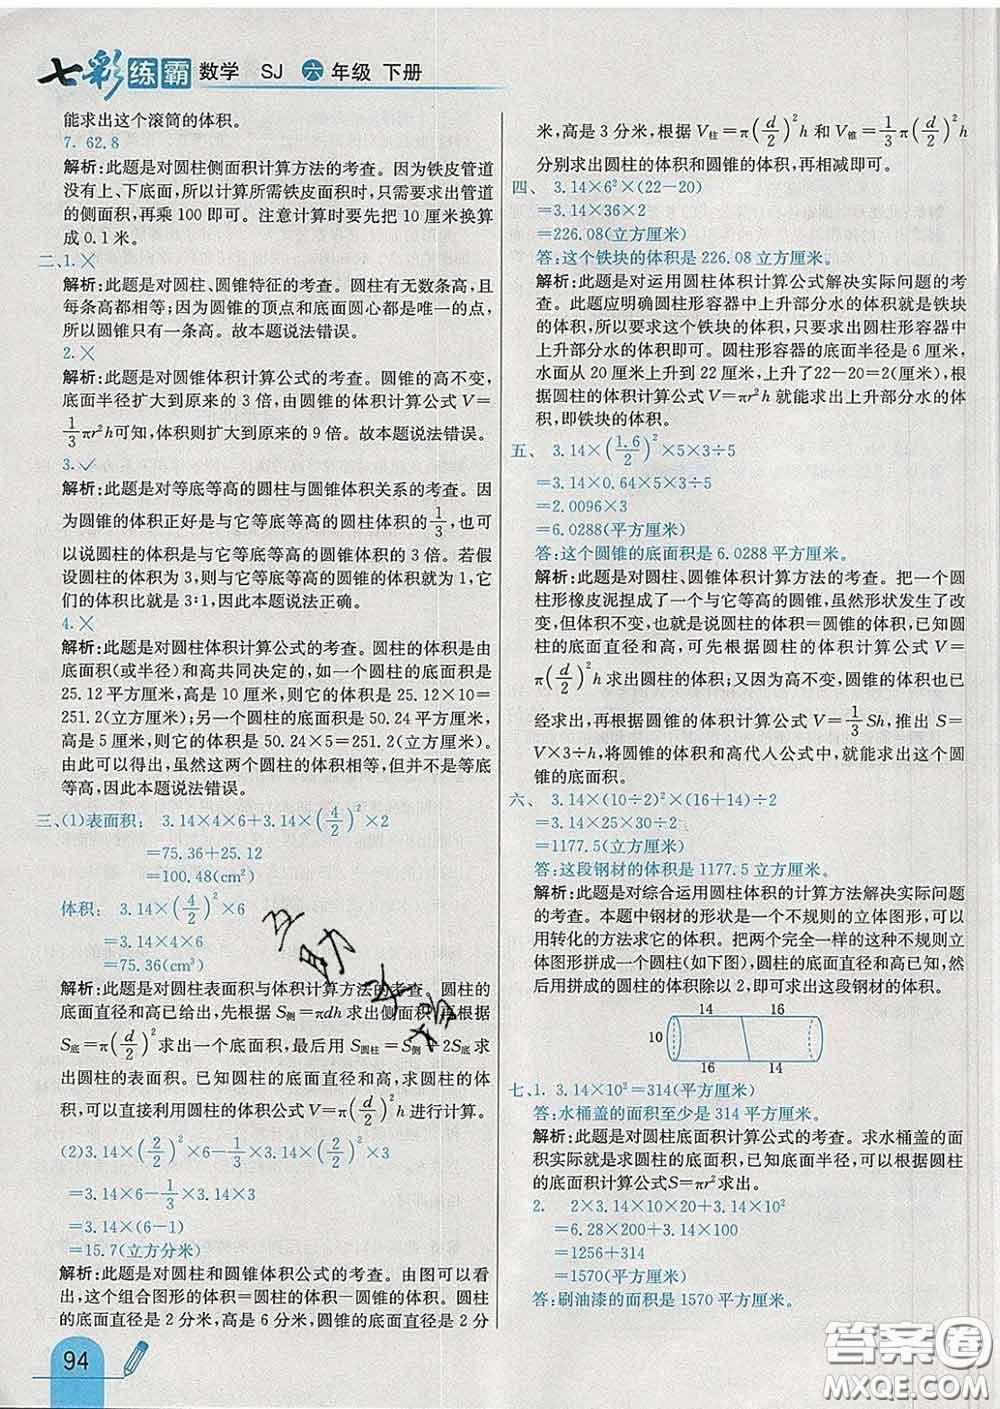 七彩练霸 数学 SJ 六年级 下册
能求出这个滚筒的体积。
7. 62.8
解析:此题是对圆柱侧面积计算方法的考查。因为铁皮管道
没有上、下底面,所以计算所需铁皮面积时,只需要求出管道
的侧面积,再乘 100 即可。注意计算时要先把 10 厘米换算
成 0.1 米。
二、1. ×
解析:此题是对圆柱、圆锥特征的考查。圆柱有无数条高,且
每条高都相等;因为圆锥的顶点和底面圆心都是唯一的点,
所以圆锥只有一条高。故本题说法错误。
2. ×
解析:此题是对圆锥体积计算公式的考查。圆锥的高不变,
底面半径扩大到原来的 3 倍,由圆锥的体积计算公式 V=
1/3πr²h可知,体积则扩大到原来的 9 倍。故本题说法错误。
3. ✓
解析:此题是对等底等高的圆柱与圆锥体积关系的考查。因
为圆锥的体积正好是与它等底等高的圆柱体积的1/3,也可
以说圆柱的体积是与它等底等高的圆锥体积的 3 倍。若假
设圆柱的体积为 3,则与它等底等高的圆锥的体积就为 1,它
们的体积比就是 3∶1,因此本题说法正确。
4. ×
解析:此题是对圆柱体积计算公式的考查。圆柱的体积是由
底面积(或半径)和高共同决定的,如一个圆柱的底面积是
25.12 平方厘米,高是 10 厘米,则它的体积是 25.12×10=
251.2(立方厘米);另一个圆柱的底面积是 50.24 平方厘米,
高是 5 厘米,则它的体积是 50.24×5=251.2(立方厘米)。
由此可以得出,虽然这两个圆柱的体积相等,但并不是等底
等高,因此本题说法错误。
三、(1)表面积: 3.14×4×6+3.14×(4/2)²×2
=75.36+25.12
=100.48(cm²)
体积: 3.14×(4/2)²×6
=3.14×4×6
=75.36(cm³)
解析:此题是对圆柱表面积与体积计算方法的考查。圆柱的
底面直径和高已给出,先根据 S侧=πdh 求出侧面积,再根据
S底=π(d/2)²求出一个底面积,最后用 S圆柱=S侧+2S底 求
出圆柱的表面积。已知圆柱的底面直径和高,求圆柱的体积,
可以直接利用圆柱的体积公式 V=π(d/2)²h 进行计算。
(2)3.14×(2/2)²×6-1/3×3.14×(2/2)²×3
=3.14×6-1/3×3.14×3
=3.14×(6-1)
=15.7(立方分米)
解析:此题是对圆柱和圆锥体积公式的考查。由图可以看
出,这个组合图形的体积=圆柱的体积-圆锥的体积。圆柱
的底面直径是 2 分米,高是 6 分米,圆锥的底面直径是 2 分
米,高是 3 分米,根据 V柱=π(d/2)²h 和 V锥=1/3π(d/2)²h
分别求出圆柱的体积和圆锥的体积,再相减即可。
四、 3.14×6²×(22-20)
=3.14×36×2
=226.08(立方厘米)
答:这个铁块的体积是 226.08 立方厘米。
解析:此题是对运用圆柱体积计算公式解决实际问题的考
查。此题应明确圆柱形容器中上升部分水的体积就是铁块
的体积,所以要求这个铁块的体积,只要求出圆柱形容器中
上升部分水的体积即可。圆柱形容器的底面半径是 6 厘米,
水面从 20 厘米上升到 22 厘米,上升了22-20=2(厘米),根
据圆柱的体积计算公式 V=πr²h 就能求出上升部分水的体
积,即铁块的体积。
五、 3.14×(1.6/2)²×5×3÷5
=3.14×0.64×5×3÷5
=2.0096×3
=6.0288(平方厘米)
答:这个圆锥的底面积是 6.0288 平方厘米。
解析:此题是对圆柱、圆锥体积计算方法的考查。把一个圆
柱形橡皮泥捏成了一个与它等高的圆锥,虽然形状发生了改
变,但体积不变,也就是说圆柱的体积=圆锥的体积,已知圆
柱的底面直径和高,可先根据圆柱的体积计算公式 V=
π(d/2)²h 求出圆柱的体积;又因为高不变,圆锥的体积也已
经求出,再根据圆锥的体积计算公式 V=1/3Sh,推出 S=
V×3÷h,将圆锥的体积和高代人公式中,就能求出这个圆
锥的底面积。
六、 3.14×(10÷2)²×(16+14)÷2
=3.14×25×30÷2
=1177.5(立方厘米)
答:这段钢材的体积是 1177.5 立方厘米。
解析:此题是对综合运用圆柱体积的计算方法解决实际问题
的考查。本题中钢材的形状是一个不规则的立体图形,可以
用转化的方法求它的体积。把两个完全一样的这种不规则立
体图形拼成一个圆柱(如下图),圆柱的底面直径和高已知,然
后用拼成的圆柱的体积除以 2,即可求出这段钢材的体积。
14 16
10
16 14
七、1. 3.14×10²=314(平方厘米)
答:水桶盖的面积至少是 314 平方厘米。
解析:此题是对圆柱底面积计算公式的考查。求水桶盖的面
积实际就是求圆柱的底面积,已知底面半径,可以根据圆柱
的底面积计算公式S=πr²求出。
2. 2×3.14×10×20+3.14×10²
=6.28×200+3.14×100
=1256+314
=1570(平方厘米)
答:刷油漆的面积是 1570 平方厘米。
94
答案圈
MXQE.COM